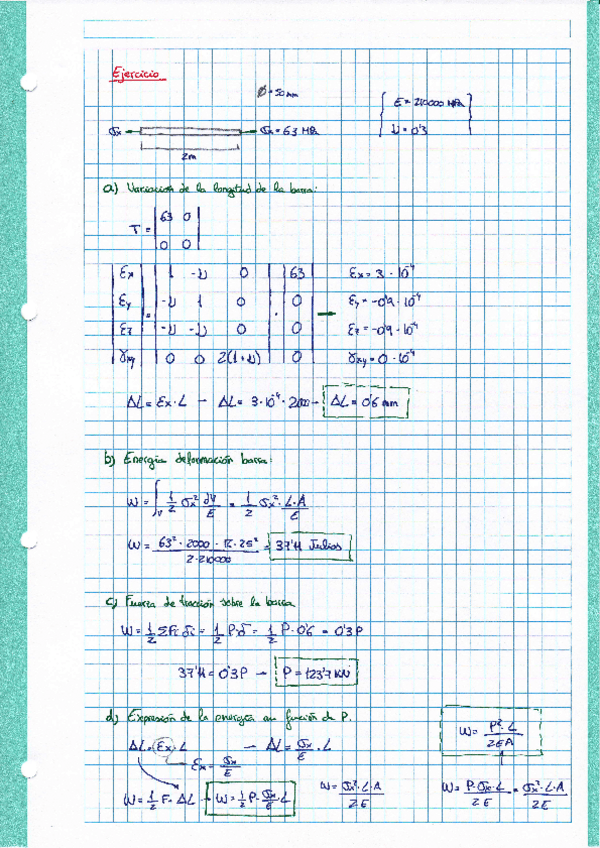 Ejercicio
Ø = 50 mm
E = 210000 MPa
ν = 0'3
σx
σx = 63 MPa
2m
a) Variación de la longitud de la barra:
T = | 63 0 |
| 0 0 |
| εx | | 1 -ν 0 | | 63 | εx = 3 · 10⁻⁴
| εy | = | -ν 1 0 | · | 0 | → εy = -0'9 · 10⁻⁴
| εz | | -ν -ν 0 | | 0 | εz = -0'9 · 10⁻⁴
| γxy | | 0 0 2(1+ν) | | 0 | γxy = 0 · 10⁻⁴
ΔL = εx · L → ΔL = 3 · 10⁻⁴ · 2000 → ΔL = 0'6 mm
b) Energía deformación barra:
W = ∫v 1/2 σx² dV/E = 1/2 σx² · L · A / E
W = 63² · 2000 · π · 25² / 2 · 210000 = 37'11 Julios
c) Fuerza de tracción sobre la barra
W = 1/2 ΣFi δi = 1/2 P · δ = 1/2 P · 0'6 = 0'3P
37'11 = 0'3P → P = 123'7 kN
d) Expresión de la energía en función de P.
ΔL = εx · L → ΔL = σx/E · L
εx = σx/E
W = 1/2 F · ΔL → W = 1/2 P · σx/E · L
W = σx² · L · A / 2E
W = P² · L / 2EA
W = P · σx · L / 2E = σx² · L · A / 2E